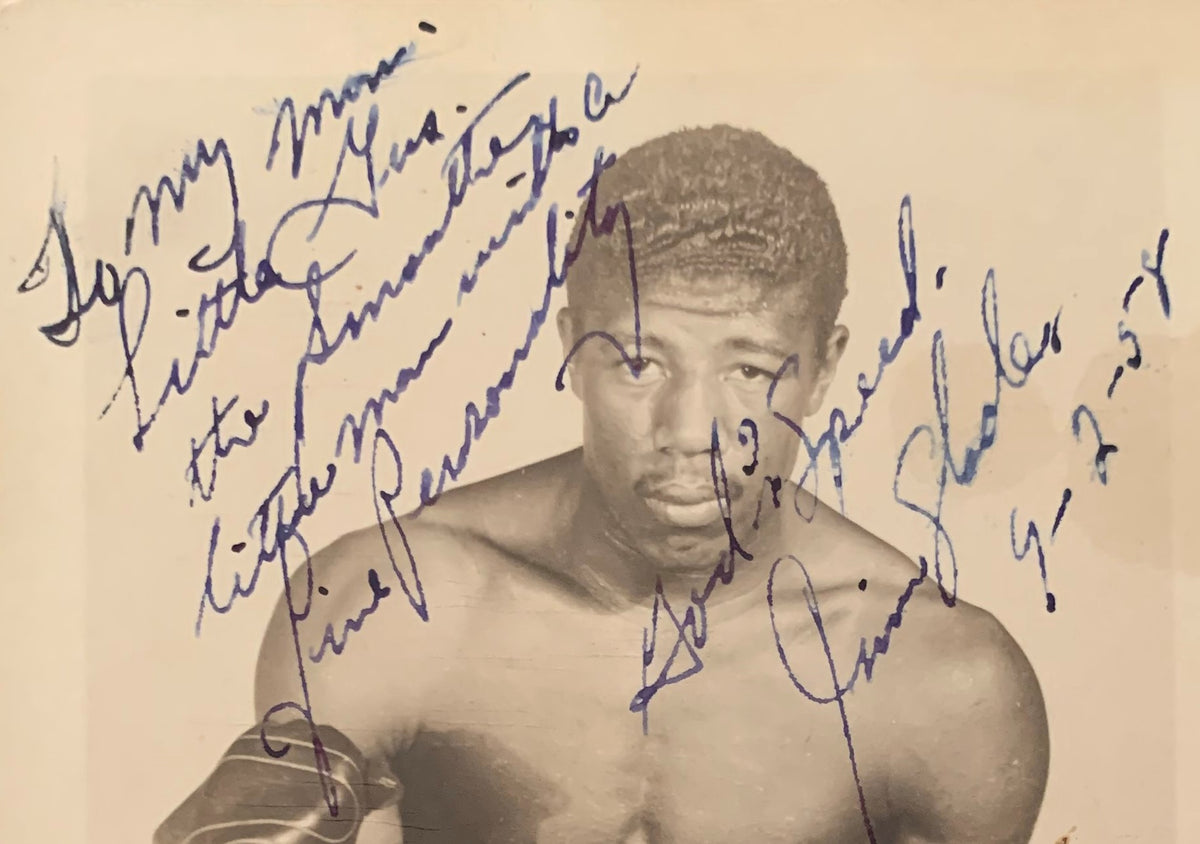 To my Man.
Little Gus.
the Smoothest
little man with a
Fine Personality
God's Speed.
Jimmy Slade
9-2-58